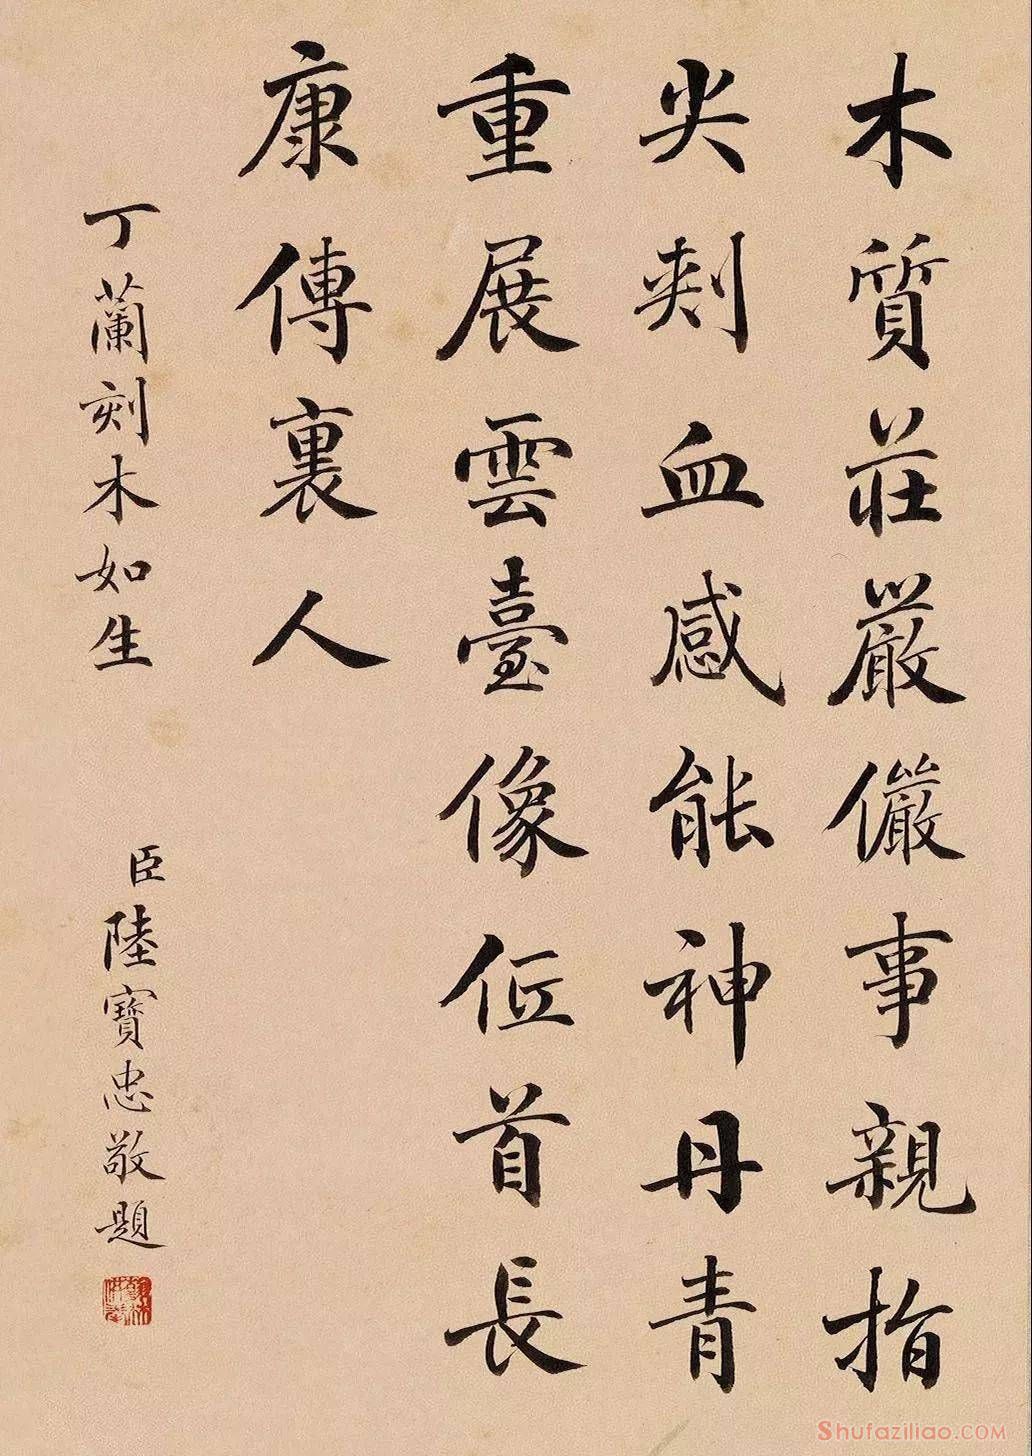 木質莊嚴儼事親指
尖刾血感能神丹青
重展雲臺像低首長
康傳裏人
丁蘭刻木如生
臣陸寶忠敬題
Shufaziliao.COM